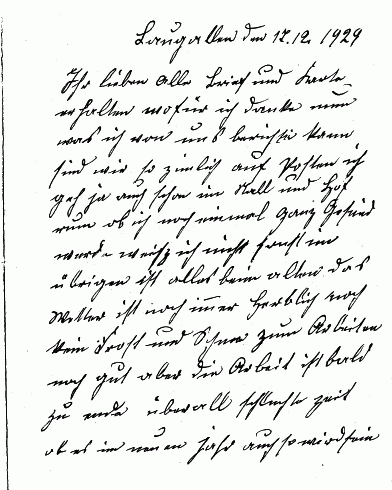 Laugallen den 17.12.1929
Ihr lieben alle Brief und Karte
erhalten wofür ich danke nun
was ich von uns berichte kann
sind wir so zimlich auf Posten ich
geh ja auch schon im Stall und Hof
rum ob ich noch einmal ganz Gesund
werde weiß ich nicht sonst im
übrigen ist alles beim alten das
Wetter ist noch immer Herblich noch
kein Frost und Schnee zum Arbeiten
noch gut aber die Arbeit ist bald
zu ende überall schlechte zeit
ob es im neuen Jahr auch so wird sein